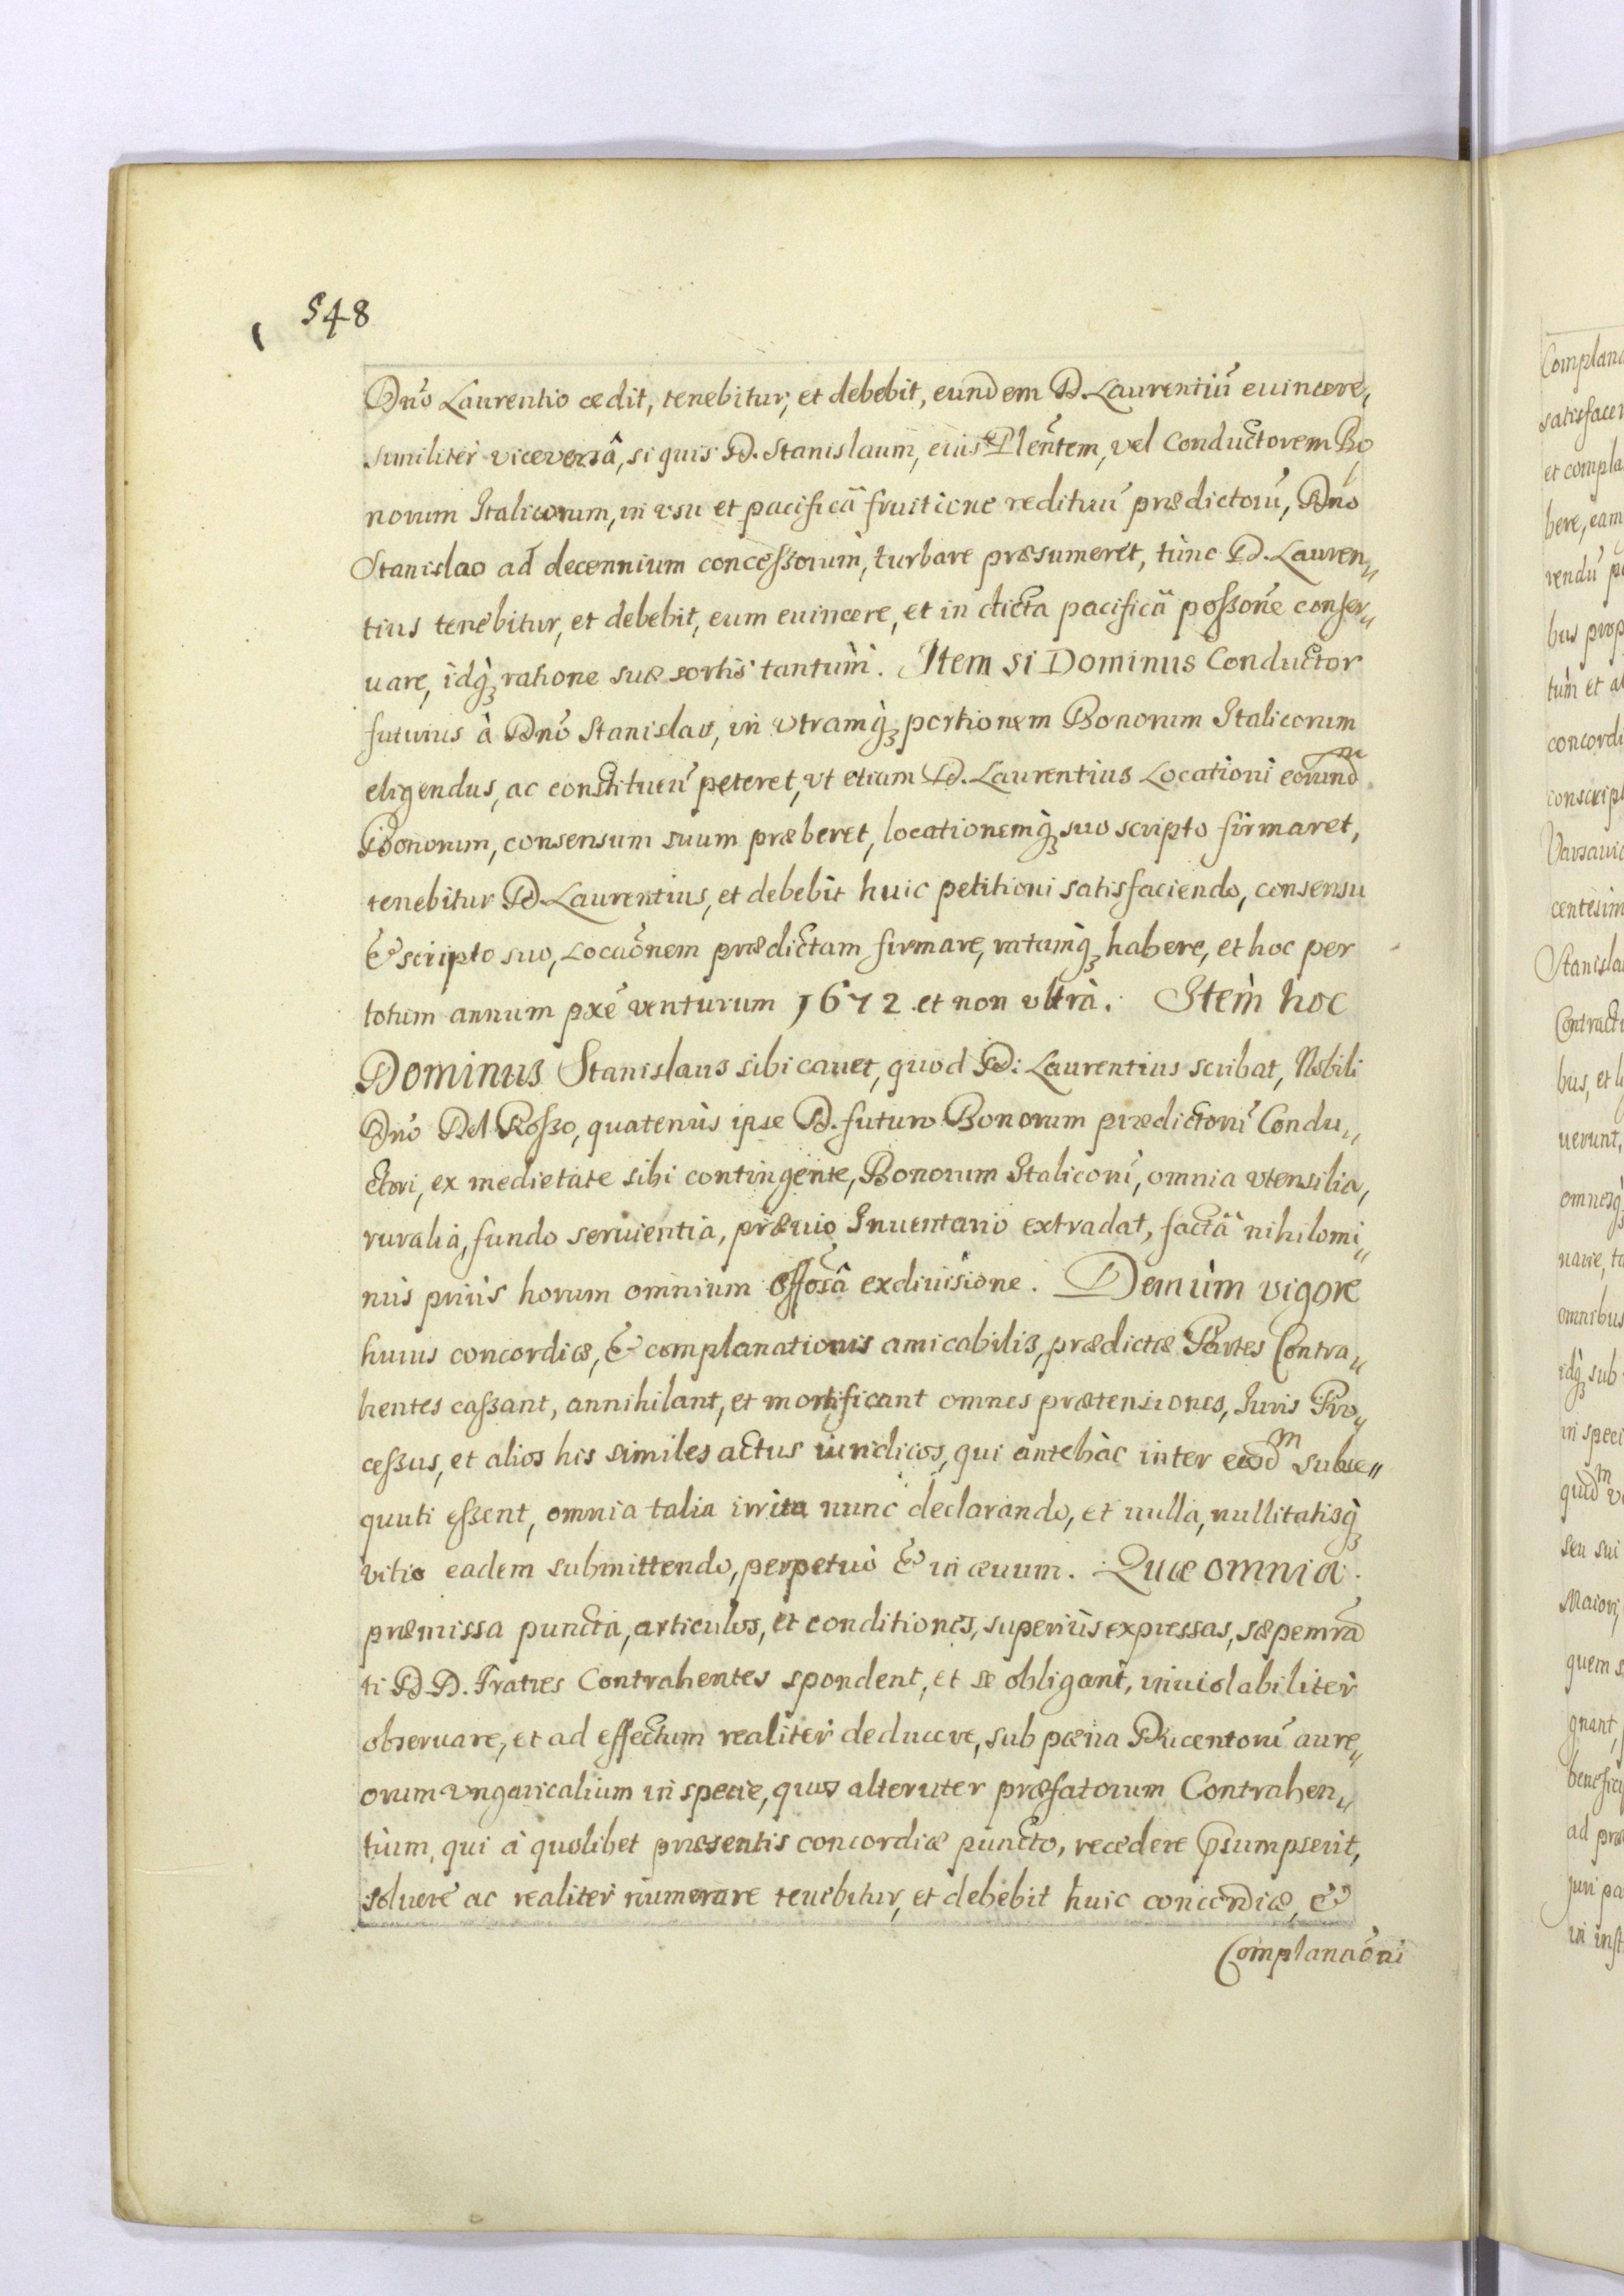 548
Dnõ Laurentio cedit, tenebitur, et debebit, eundem D. Laurentiũ euincere,
similiter viceversâ, si quis D. Stanislaum, eius Plẽntem, vel Conductorem Bo
norum Italicorum, in vsu et pacificâ fruitione redituũ prædictorũ, Dnõ
Stanislao ad decennium concessorum, turbare præsumeret, tunc D. Lauren„
tius tenebitur, et debebit, eum euincere, et in dicta pacificâ possõne conser„
uare, idq́ꝫ ratione suæ sortis tantùm. Item si Dominus Conductor
futurus à Dnõ Stanislao, in vtramq́ꝫ portionem Bonorum Italicorum
eligendus, ac constituen̄ peteret, vt etiam D. Laurentius Locationi eorund̃m
Bonorum, consensum suum præberet, locationemq́ꝫ suo scripto firmaret,
tenebitur D. Laurentius, et debebit huic petitioni satisfaciendo, consensu
& scripto suo, Locaõnem prædictam firmare, ratamq́ꝫ habere, et hoc per
totum annum pxẽ venturum 1672 et non vltrà. Item hoc
Dominus Stanislaus sibi cauet, quod D: Laurentius scribat, Nobili
Dnõ Del Rosso, quatenùs ipse D. futuro Bonorum prædictorũ Condu„
ctori, ex medietate sibi contingente, Bonorum Italicorũ, omnia vtensilia,
ruralia, fundo seruientia, præuio Inuentario extradat, factâ nihilomi„
nùs priùs horum omnium offõsâ exdiuisione. Demùm vigore
huius concordiæ, & complanationis amicabilis, prædictæ Partes Contra„
hentes cassant, annihilant, et mortificant omnes prætensiones, Iuris Pro„
cessus, et alios his similes actus iuridicos, qui antehàc inter eosd̃m subse„
quuti essent, omnia talia irrita nunc declarando, et nulla, nullitatisq́ꝫ
vitio eadem submittendo, perpetuò & in æuum. Quæ omnia
præmissa puncta, articulos, et conditiones, superiùs expressas, sæpemrã
ti D.D. Fratres Contrahentes spondent, et se obligant, inuiolabiliter
obseruare, et ad effectum realiter deducere, sub pœna Ducentorũ aure„
orum vngaricalium in specie, quos alteruter præfatorum Contrahen„
tium, qui à quolibet præsentis concordiæ puncto, recedere p̃sumpserit,
soluere ac realiter numerare tenebitur, et debebit huic concordiæ, &
Complanaõni